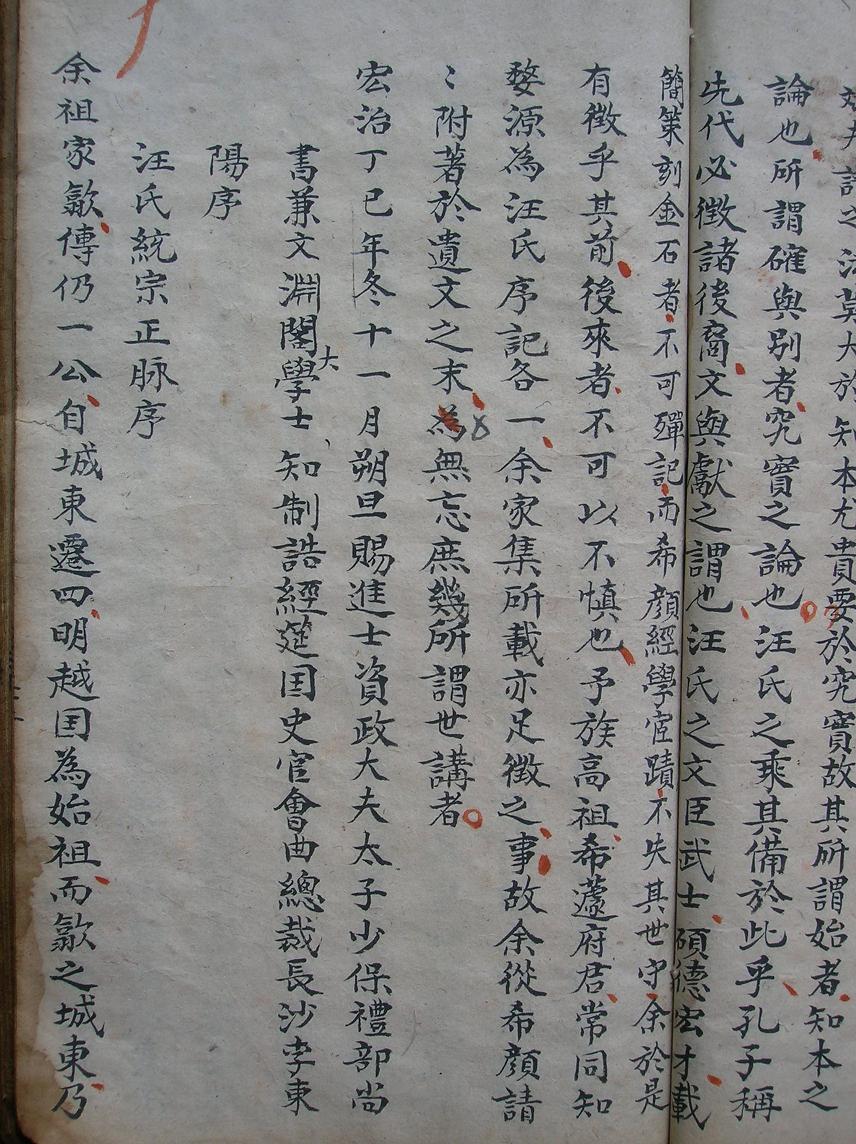 法莫大於知本尤貴要於究實故其所謂始者知本之
論也所謂確與別者究實之論也汪氏之乘其備於此乎孔子稱
先代必徵諸後裔文與獻之謂也汪氏之文臣武士碩德宏才載
簡策刻金石者不可殫記而希顏經學宦蹟不失其世守余於是
有徵乎其前後來者不可以不慎也予族高祖希蘧府君常同知
婺源為汪氏序記各一余家集所載亦足徵之事故余從希顏請
〻附著於遺文之末為無忘庶幾所謂世講者
宏治丁巳年冬十一月朔旦賜進士資政大夫太子少保禮部尚
書兼文淵閣大學士知制誥經筵囯史官會曲總裁長沙李東
陽序
汪氏統宗正脉序
余祖家歙傳仍一公自城東遷四明越囯為始祖而歙之城東乃